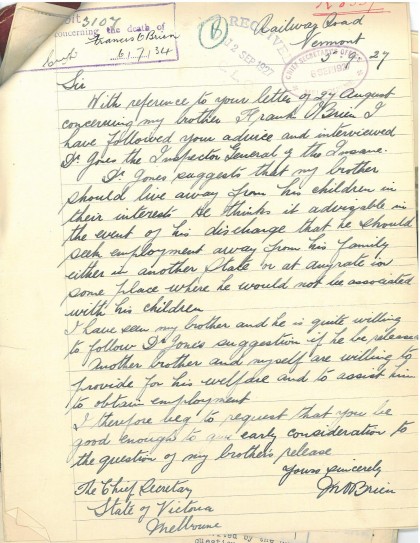 3107
concerning the death of
Francis O'Brien
6/7/34
B
RECEIVED
2 SEP 1927
CHIEF SECRETARY'S OFFICE
Railway Road
Vermont
27
Sir
With reference to your letter of 27 August
concerning my brother Frank O'Brien I
have followed your advice and interviewed
Dr Jones the Inspector General of the Insane.
Dr Jones suggests that my brother
should live away from his children in
their interests He thinks it advisable in
the event of his discharge that he should
seek employment away from his family
either in another State or at any rate in
some place where he would not be associated
with his children
I have seen my brother and he is quite willing
to follow Dr Jones suggestion if he be released
Another brother and myself are willing to
provide for his welfare and to assist him
to obtain employment
I therefore beg to request that you be
good enough to give early consideration to
the question of my brothers release
Yours sincerely
O'Brien
The Chief Secretary
State of Victoria
Melbourne